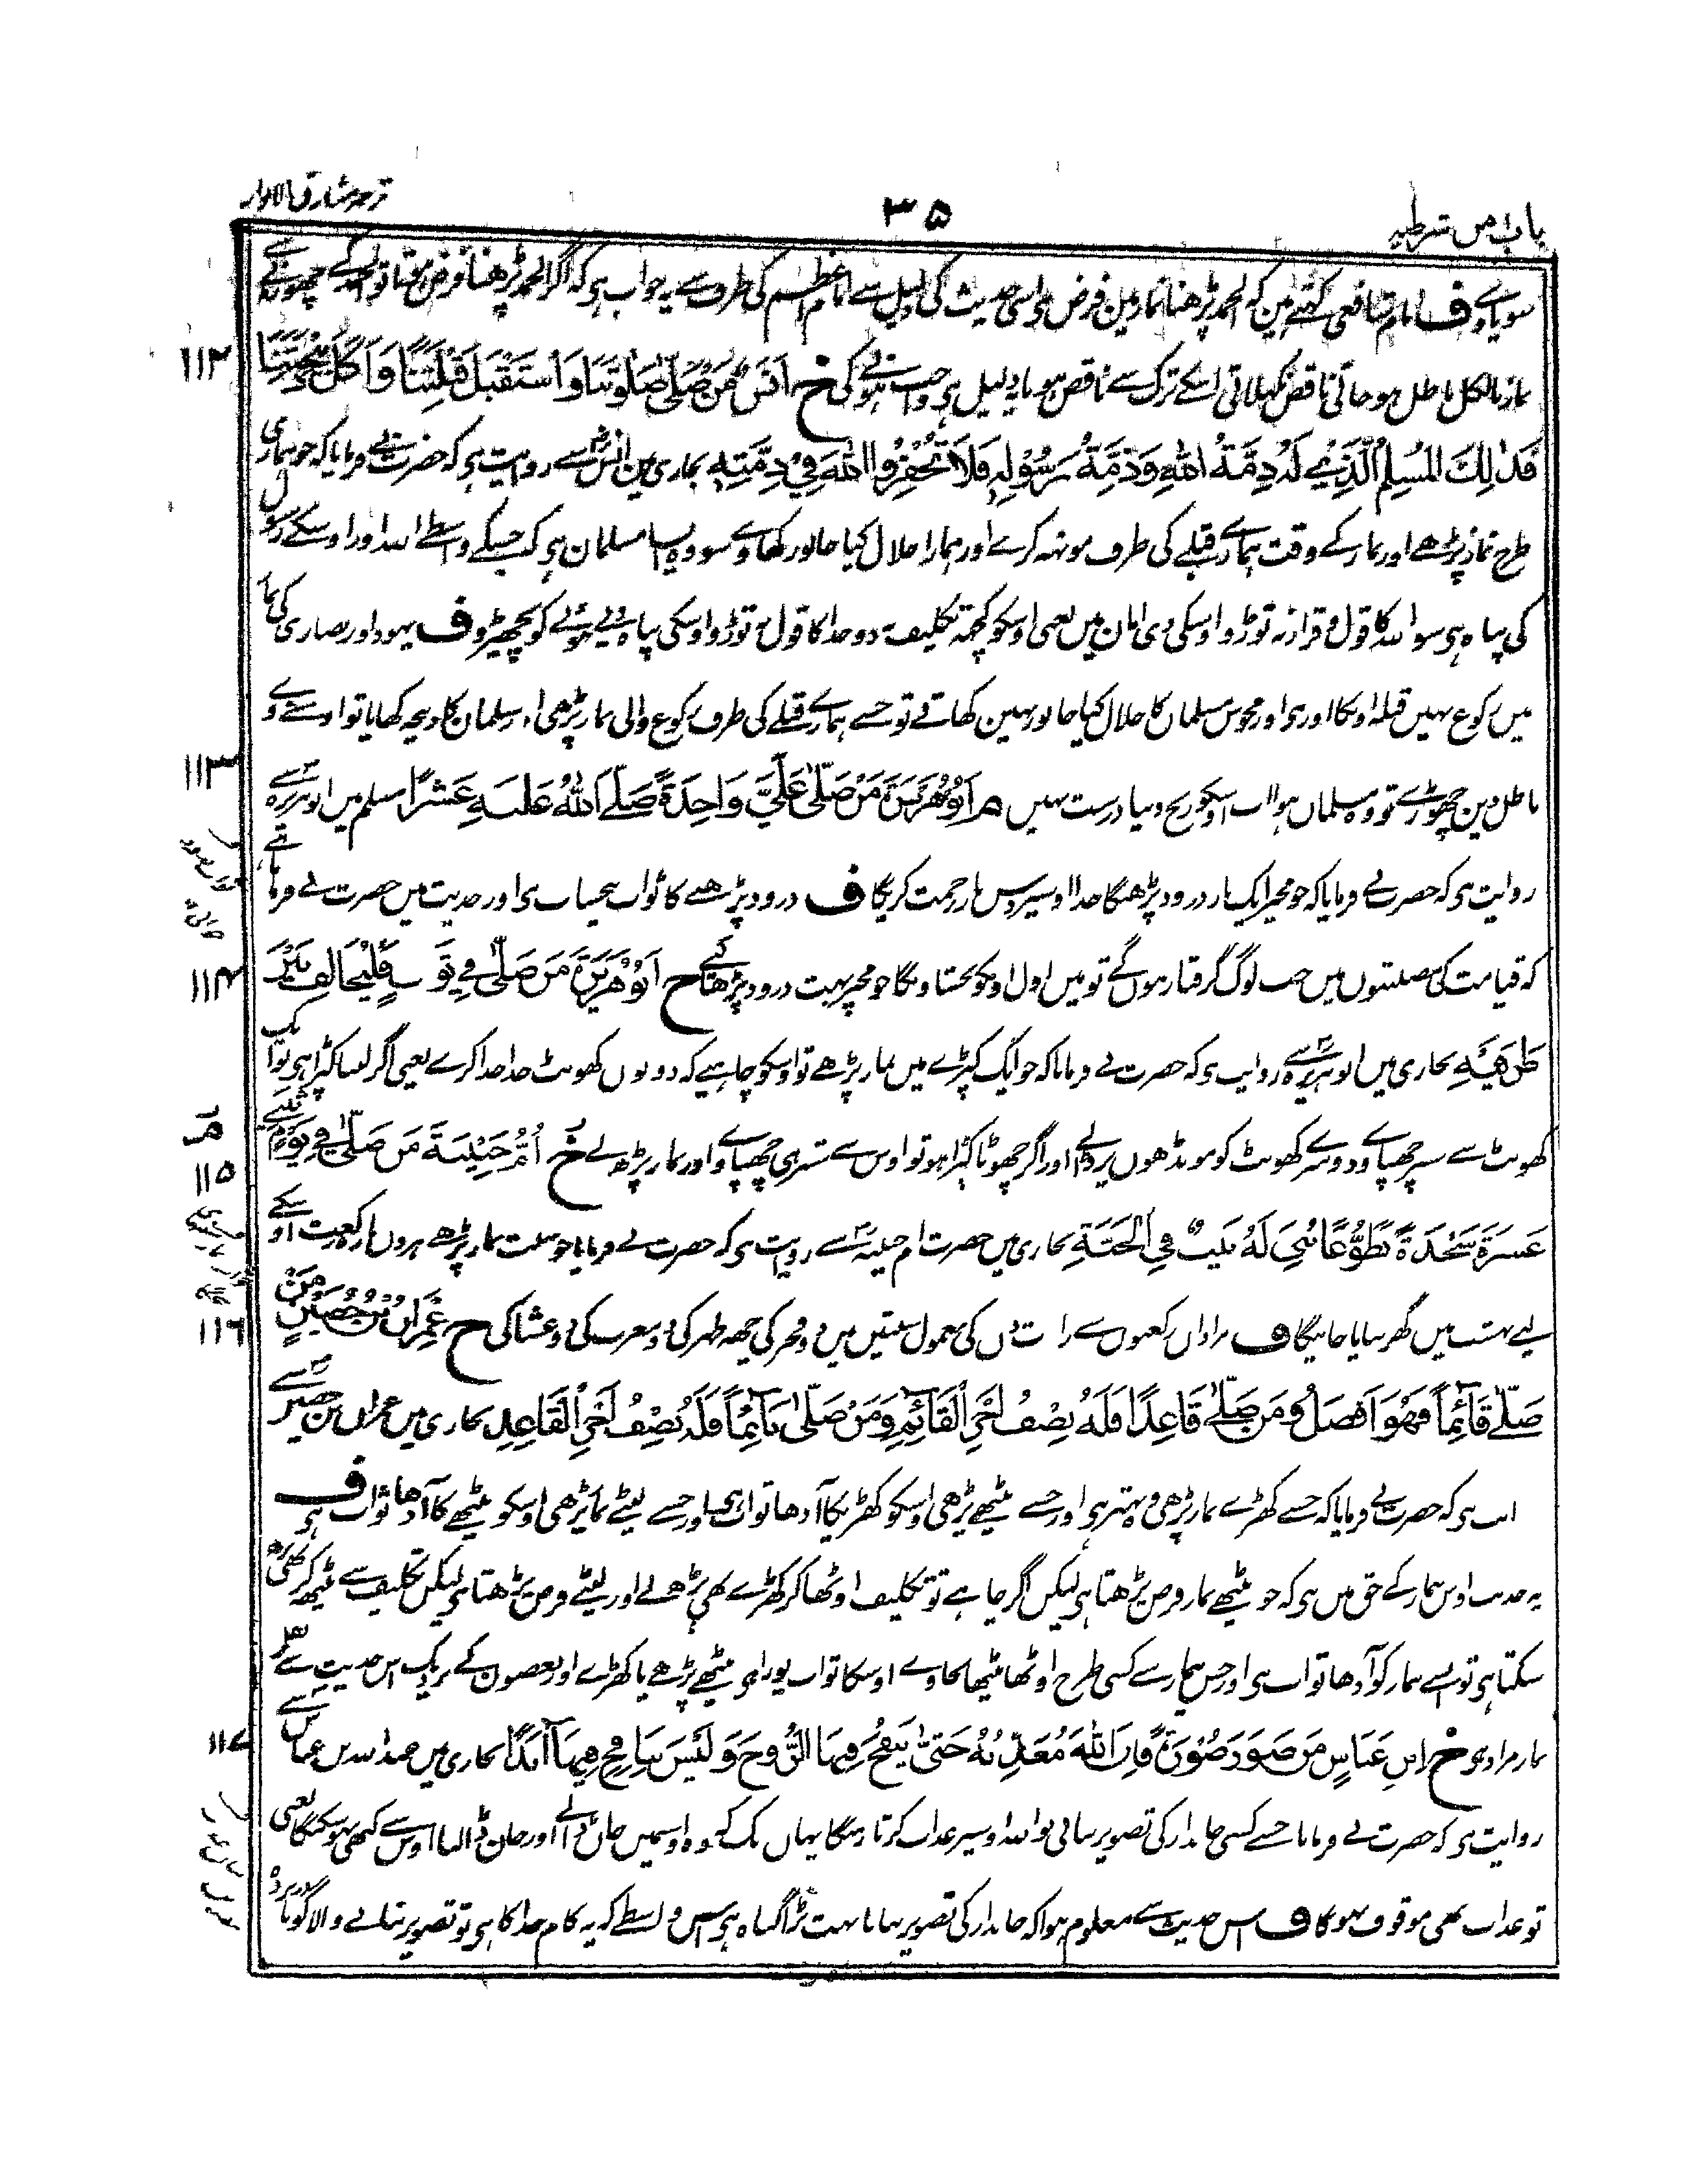 باب من شرطیہ
۳۵
ترجمہ مشارق الانوار
سویاوے ف امام شافعی کہتے ہین کہ الحمد پڑھنا نماز مین فرض ہی اسی حدیث کی دلیل سے امام اعظم کی طرف سے یہ جواب ہی کہ اگر الحمد پڑھنا فرض ہوتا تو الحمد کے چھوڑنے سے
نماز بالکل باطل ہو جاتی ناقص نکہلاتی اسکے ترک سے ناقص ہونا یہ دلیل ہی واجب ہونے کی خ اَنَسٌ مَنْ صَلّٰی صَلٰوتَنَا وَاسْتَقْبَلَ قِبْلَتَنَا وَاَكَلَ ذَبِيْحَتَنَا
۱۱۲
فَذٰلِكَ الْمُسْلِمُ الَّذِیْ لَهٗ ذِمَّةُ اللّٰهِ وَذِمَّةُ رَسُوْلِهٖ فَلَا تُخْفِرُوا اللّٰهَ فِیْ ذِمَّتِهٖ بخاری مین انس سے روایت ہی کہ حضرت نے فرمایا کہ جو ہماری
طرح نماز پڑھے اور نماز کے وقت ہمارے قبلے کی طرف مونہہ کرے اور ہمارا حلال کیا جانور کھاوے سو وہ ایسا مسلمان ہی کہ جسکے واسطے اللہ اور اوسکے رسول
کی پناہ ہی سو اللہ کا قول و قرار نہ توڑو اوسکی دی امان میں یعنی اوسکو کچھ تکلیف نہ دو خدا کا قول نہ توڑو اوسکی پناہ دیے ہوئے کو نچھیڑو ف یہود اور نصاری کی نماز
میں رکوع نہیں قبلہ اونکا اور ہی اور مجوس مسلمان کا حلال کیا جانور نہین کھاتے تو جسنے ہمارے قبلے کی طرف رکوع والی نماز پڑھی اور مسلمان کا ذبیحہ کھایا تو اوسنے وہ
باطل دین چھوڑے تو وہ مسلمان ہوا اب اوسکو رنج دینا درست نہیں م اَبُوْهُرَيْرَةَ مَنْ صَلّٰی عَلَیَّ وَاحِدَةً صَلَّی اللّٰهُ عَلَيْهِ عَشْرًا مسلم میں ابو ہریرہ سے
۱۱۳
روایت ہی کہ حضرت نے فرمایا کہ جو مجھ پر ایک بار درود پڑھیگا خدا اوسپر دس بار رحمت کریگا ف درود پڑھنے کا ثواب بیحساب ہی اور حدیت میں حضرت نے فرمایا ہے
کہ قیامت کی مصیبتوں میں جب لوگ گرفتار ہوں گے تو میں اول اوسکو بخشاونگا جو مجھ پر بہت درود پڑھتا ہے خ اَبُوْهُرَيْرَةَ مَنْ صَلّٰی فِیْ ثَوْبٍ فَلْيُخَالِفْ بَيْنَ
۱۱۴
طَرَفَيْهِ بخاری میں ابو ہریرہ سے روایت ہی کہ حضرت نے فرمایا کہ جو ایک کپڑے میں نماز پڑھے تو اوسکو چاہیے کہ دونوں کھونٹ جدا جدا کرے یعنی اگر لمبا کپڑا ہی تو ایک
کھونٹ سے سر چھپاوے دوسرے کھونٹ کو مونڈھوں پر ڈالے اور اگر چھوٹا کپڑا ہو تو اوس سے ستر ہی چھپاوے اور نماز پڑھ لے خ اُمُّ حَبِيْبَةَ مَنْ صَلّٰی فِیْ يَوْمٍ ثِنْتَیْ
۱۱۵
عَشَرَةَ سَجْدَةً تَطَوُّعًا بُنِیَ لَهٗ بَيْتٌ فِی الْجَنَّةِ بخاری میں حضرت ام حبیبہ سے روایت ہی کہ حضرت نے فرمایا جو سنت نماز پڑھے ہر دن بارہ رکعت اوسکے
لیے بہشت میں گھر بنایا جائیگا ف مراد ان رکعتوں سے رات دن کی معمول سنتیں ہیں دو فجر کی چھہ ظہر کی دو مغرب کی دو عشا کی خ عِمْرَانُ بْنُ حُصَيْنٍ مَنْ
۱۱۶
صَلّٰی قَائِمًا فَهُوَ اَفْضَلُ وَمَنْ صَلّٰی قَاعِدًا فَلَهٗ نِصْفُ اَجْرِ الْقَائِمِ وَمَنْ صَلّٰی نَائِمًا فَلَهٗ نِصْفُ اَجْرِ الْقَاعِدِ بخاری میں عمران بن حصین سے
روایت ہی کہ حضرت نے فرمایا کہ جسنے کھڑے نماز پڑھی وہ بہتر ہی اور جسنے بیٹھے پڑھی اوسکو کھڑیکا آدھا ثواب ہی اور جسنے لیٹے نماز پڑھی اوسکو بیٹھے کا آدھا ثواب ہی ف
یہ حدیث اوس بیمار کے حق میں ہی کہ جو بیٹھے نماز فرض پڑھتا ہی لیکن اگر چاہے تو تکلیف اوٹھا کر کھڑے بھی پڑھ لے اور لیٹے فرض پڑھتا ہی لیکن تکلیف سے بیٹھ کر بھی پڑھ
سکتا ہی تو ایسے بیمار کو آدھا ثواب ہی اور جس بیمار سے کسی طرح اوٹھا بیٹھا نجاوے اوسکا ثواب پورا ہی بیٹھے پڑھے یا کھڑے اور بعضوں کے نزدیک اس حدیث سے نفل
نماز مراد ہی خ اِبْنُ عَبَّاسٍ مَنْ صَوَّرَ صُوْرَةً فَاِنَّ اللّٰهَ مُعَذِّبُهٗ حَتّٰی يَنْفُخَ فِيْهَا الرُّوْحَ وَلَيْسَ بِنَافِخٍ فِيْهَا اَبَدًا بخاری میں عبد اللہ بن عباس سے
۱۱۷
روایت ہی کہ حضرت نے فرمایا جسنے کسی جاندار کی تصویر بنائی تو اللہ اوسپر عذاب کرتا رہیگا یہاں تک کہ وہ اوسمیں جان ڈالے اور جان ڈالنا اوس سے کبھی نہو سکیگا یعنی
تو عذاب بھی موقوف نہوگا ف اس حدیث سے معلوم ہوا کہ جاندار کی تصویر بنانا بہت بڑا گناہ ہی اس واسطے کہ یہ کام خدا کا ہی تو تصویر بنانے والا گویا